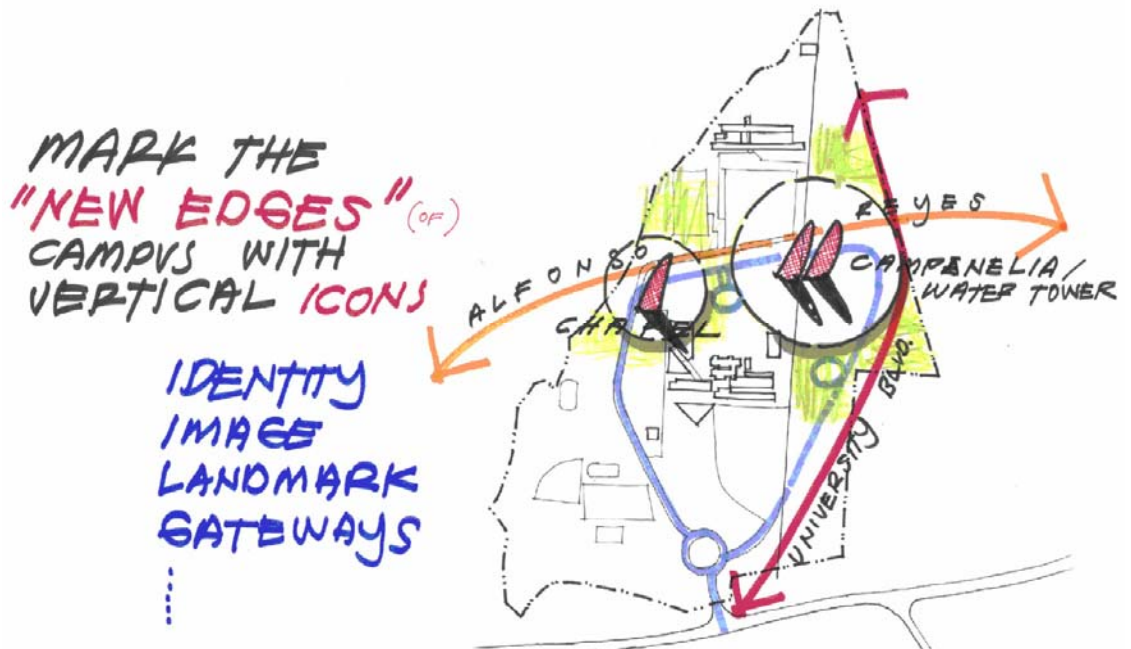 MARK THE
"NEW EDGES" (OF)
CAMPUS WITH
VERTICAL ICONS
IDENTITY
IMAGE
LANDMARK
GATEWAYS
ALFONSO REYES
CHAPEL
CAMPENELIA/
WATER TOWER
UNIVERSITY BLVD.